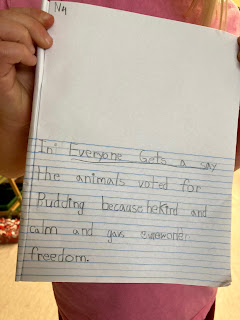 N4
In Everyone Gets a say
The animals voted for
Pudding because he Kind and
calm and gave
freedom.